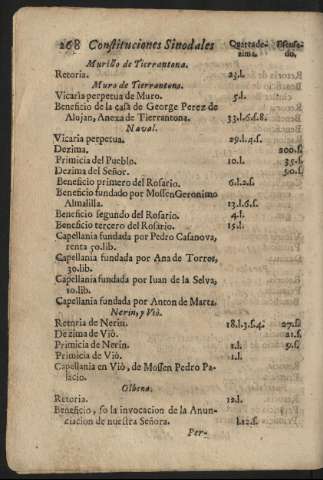 268 Constituciones Sinodales Quartade- Escusa-
zima. do.
Murillo de Tierrantona.
Retoria. 23.l.
Muro de Tierrantona.
Vicaria perpetua de Muro. 5.l.
Beneficio de la casa de George Perez de
Alujan, Anexa de Tierrantona. 33.l.6.s.8.
Naval.
Vicaria perpetua. 29.l.4.s.
Dezima. 200.s.
Primicia del Pueblo. 10.l. 35.s.
Dezima del Señor. 50.s.
Beneficio primero del Rosario. 6.l.2.s.
Beneficio fundado por Mossen Geronimo
Almalilla. 13.l.6.s.
Beneficio segundo del Rosario. 4.l.
Beneficio tercero del Rosario. 15.l.
Capellania fundada por Pedro Casanova,
renta 50.lib.
Capellania fundada por Ana de Torres,
30.lib.
Capellania fundada por Iuan de la Selva,
10.lib.
Capellania fundada por Anton de Marta.
Nerin, y Viò.
Retoria de Nerin. 18.l.3.s.4. 27.s.
Dezima de Viò. 21.s.
Primicia de Nerin. 1.l. 9.s.
Primicia de Viò. 1.l.
Capellania en Viò, de Mossen Pedro Pa-
lacio.
Olbena.
Retoria. 12.l.
Beneficio, so la invocacion de la Anun-
ciacion de nuestra Señora. l.12.s.
Per-